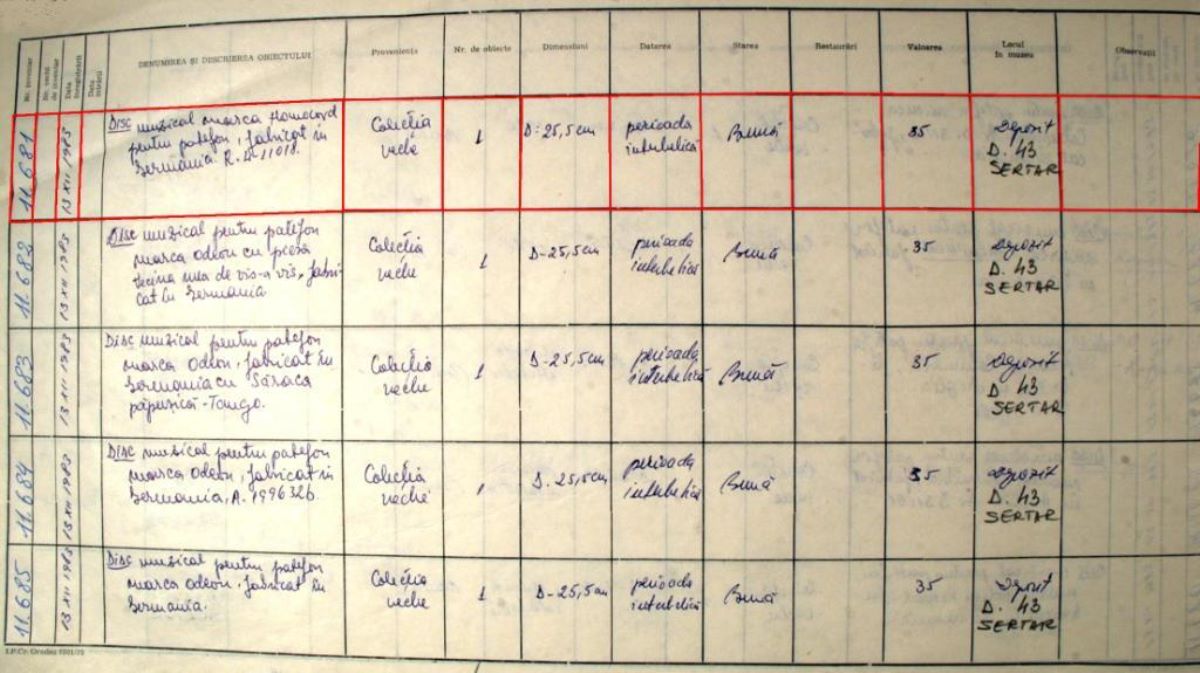 Nr. inventar
Nr. vechi de inventar
Data înregistrării
Data mişcării
DENUMIREA ŞI DESCRIEREA OBIECTULUI
Provenienţa
Nr. de obiecte
Dimensiuni
Datarea
Starea
Restaurări
Valoarea
Locul
în muzeu
Observaţii
11.681
13 XII 1983
Disc muzical marca Homocord
pentru patefon, fabricat în
Germania.
Colecţia
veche
1
D=25,5cm
perioada
interbelică
Bună
35
Depozit
D. 43
SERTAR
11.682
13 XII 1983
Disc muzical pentru patefon
marca odeon cu piesa
vecina mea de vis-a vis, fabri-
cat în Germania
Colecţia
veche
1
D-25,5cm
perioada
interbelică
Bună
35
Depozit
D. 43
SERTAR
11.683
13 XII 1983
Disc muzical pentru patefon
marca odeon, fabricat în
Germania cu Săraca
păpuşică-Tango.
Colecţia
veche
1
D-25,5cm
perioada
interbelică
Bună
35
Depozit
D 43
SERTAR
11.684
13 XII 1983
Disc muzical pentru patefon
marca odeon, fabricat în
Germania, A. 199632b
Colecţia
veche
1
D. 25,5cm
perioada
interbelică
Bună
35
Depozit
D. 43
SERTAR
11.685
13 XII 1983
Disc muzical pentru patefon
marca odeon, fabricat în
Germania.
Colecţia
veche
1
D-25,5cm
perioada
interbelică
Bună
35
Depozit
D. 43
SERTAR